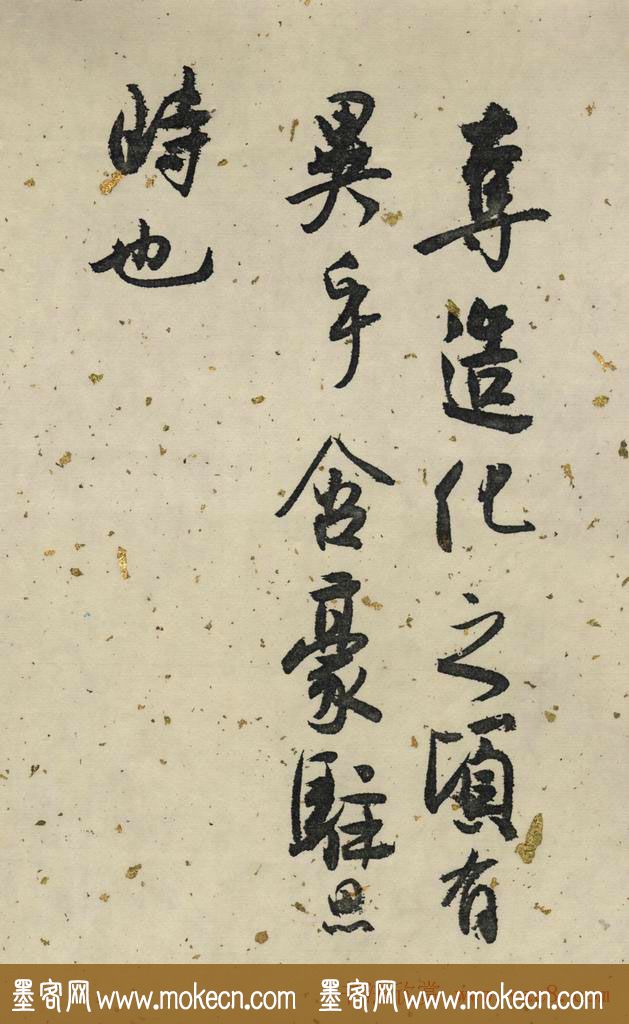 奪造化之頃有
異乎含豪駐思
時也
墨客网 www.mokecn.com 墨客网 www.mokecn.com